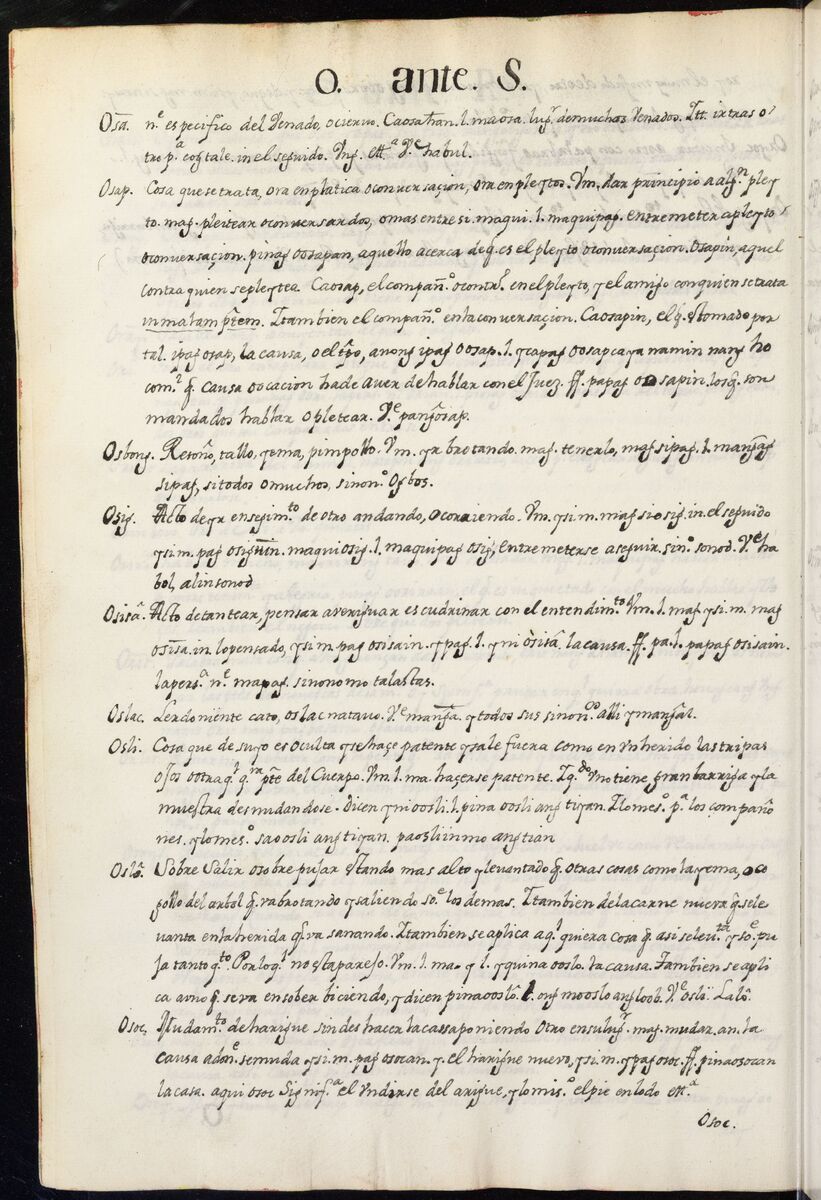 O. ante. S.
Osa. nᵉ especifico del Venado, o ciervo. Caosahan. l. maosa. lugʳ demuchos Venados. Itt. ir tras o-
tro pᵃ cogtale. in el seguido. Vng. ettᵃ Vᵉ habul.
Osap. Cosa que se trata, ora en platica o conversaçion, or en pleytos. Vm. dar principio a algⁿ pley
to. mag. pleitear o conversar dos, o mas entre si. maqui. l. maquipag. entremeter a pleyto
o conversacion. pinag oosapan, aquello acerca de q̃. es el pleyto o conversaçion. Osapin, aquel
contra quien se pleytea. Caosap, el compañ.º o contrº. en el pleyto, y el amigo con quien se trata
in malam pr̃tem. Itambien el compañº en la conversaçion. Caosapin, el q̃. es tomado por
tal. ypag osap, la causa, o el tp̃o, anong ipag oosap. l. ycapag oosap caya namin nang ho
com? q̃. causa o ocacion ha de aver de hablar con el Juez. ff. papag osapin. los q̃. son
mandados hablar o pletear. Vᵉ pangosap.
Osbong. Retoño, tallo, yema, pimpollo. Vm. yr brotando. mag. tenerlo, mag sipag. l. mangag
sipag, si todos o muchos, sinonº Osbos.
Osig. Acto de yr en segimᵗº de otro andando, o corriendo. Vm. y si m. mag sio sig. in. el seguido
y si m. pag osiguin. maqui osig. l. maquipag osig, entremeterse a seguir. sinº sonod. Vᵉ ha
bol, alinsonod
Osisâ. Acto de tantear, pensar averiguar escudrinar con el entendimᵗº Vm. l. mag. y si. m. mag
osisa. in. lo pensado, y si m. pag osisain. ypag. l. yni osisâ. la causa. ff. pa. l. papag osisain.
la persᵃ nᵉ mapag. sinonomo talastas.
Oslac. cato, oslac natauo. Vᵉ manga. y todos sus sinonºˢ alli y mangal.
Osli. Cosa que de suyo es oculta y se haçe patente y sale fuera como en vn herido las tripas
o sos o otra qˡ qʳᵃ pt̃e del Cuerpo. Vm. l. ma. haçerse patente. Iq.ᵈº vno tiene gran barriga y la
muestra desnudandose. Dicen yni oosli. l. pina oosli ang tiyan. Ilomesº pᵃ los compaño
nes. y lo mesº sao osli ang tiyan. paosliin mo ang tian
Oslô. Sobre Salir o sobre pujar estando mas alto y levantado q̃. otras cosas como la yema, o co
gollo del arbol q̃. va brotando y saliendo soᵉ los demas. Itambien de la carne nueva q̃. se le
vanta en la herida q̃. va sanando. Itambien se aplica a qˡ quiera cosa q̃. asi se levᵗᵃ y soᵉ pu
ja tanto qᵗº Por lo qˡ no esta parejo. Vm. l. ma- y l. yquina ooslo. la causa. Tambien se apli
ca amo q̃. se va ensober biciendo, y dicen pina ooslô. l. ang mooslo ang loob. Vᵉ Osli. Lalô.
Osoc, Mudamᵗº. de harigue sin des hacer la cassa poniendo otro en su lugʳ. mag. mudar. an. la
causa a donᵉ se muda y si. m. pag osocan. y. el harigue nuevo, y si. m. ypag osoc. ff. pinaosocan
la casa. aqui osoc Signifᵃ el vndirse del arigue, y lo misº el pie en lodo ettᵃ
Osoc.